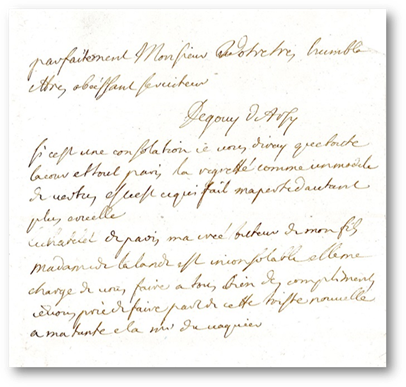 parfaitement Monsieur Votre tres humble
et tres obeissant serviteur
Degouy d'Arsy
si cest une consolation ie vous diray que toute
la cour et tout paris la regretté comme un modele
de vertus et cest ce qui fait ma perte dautant
plus cruelle
de paris ma créé tuteur de mon fils
madame de la lande est inconsolable elle me
charge de vous faire a tous bien des compliments
ie vous prie de faire part de cette triste nouvelle
a ma tante e la